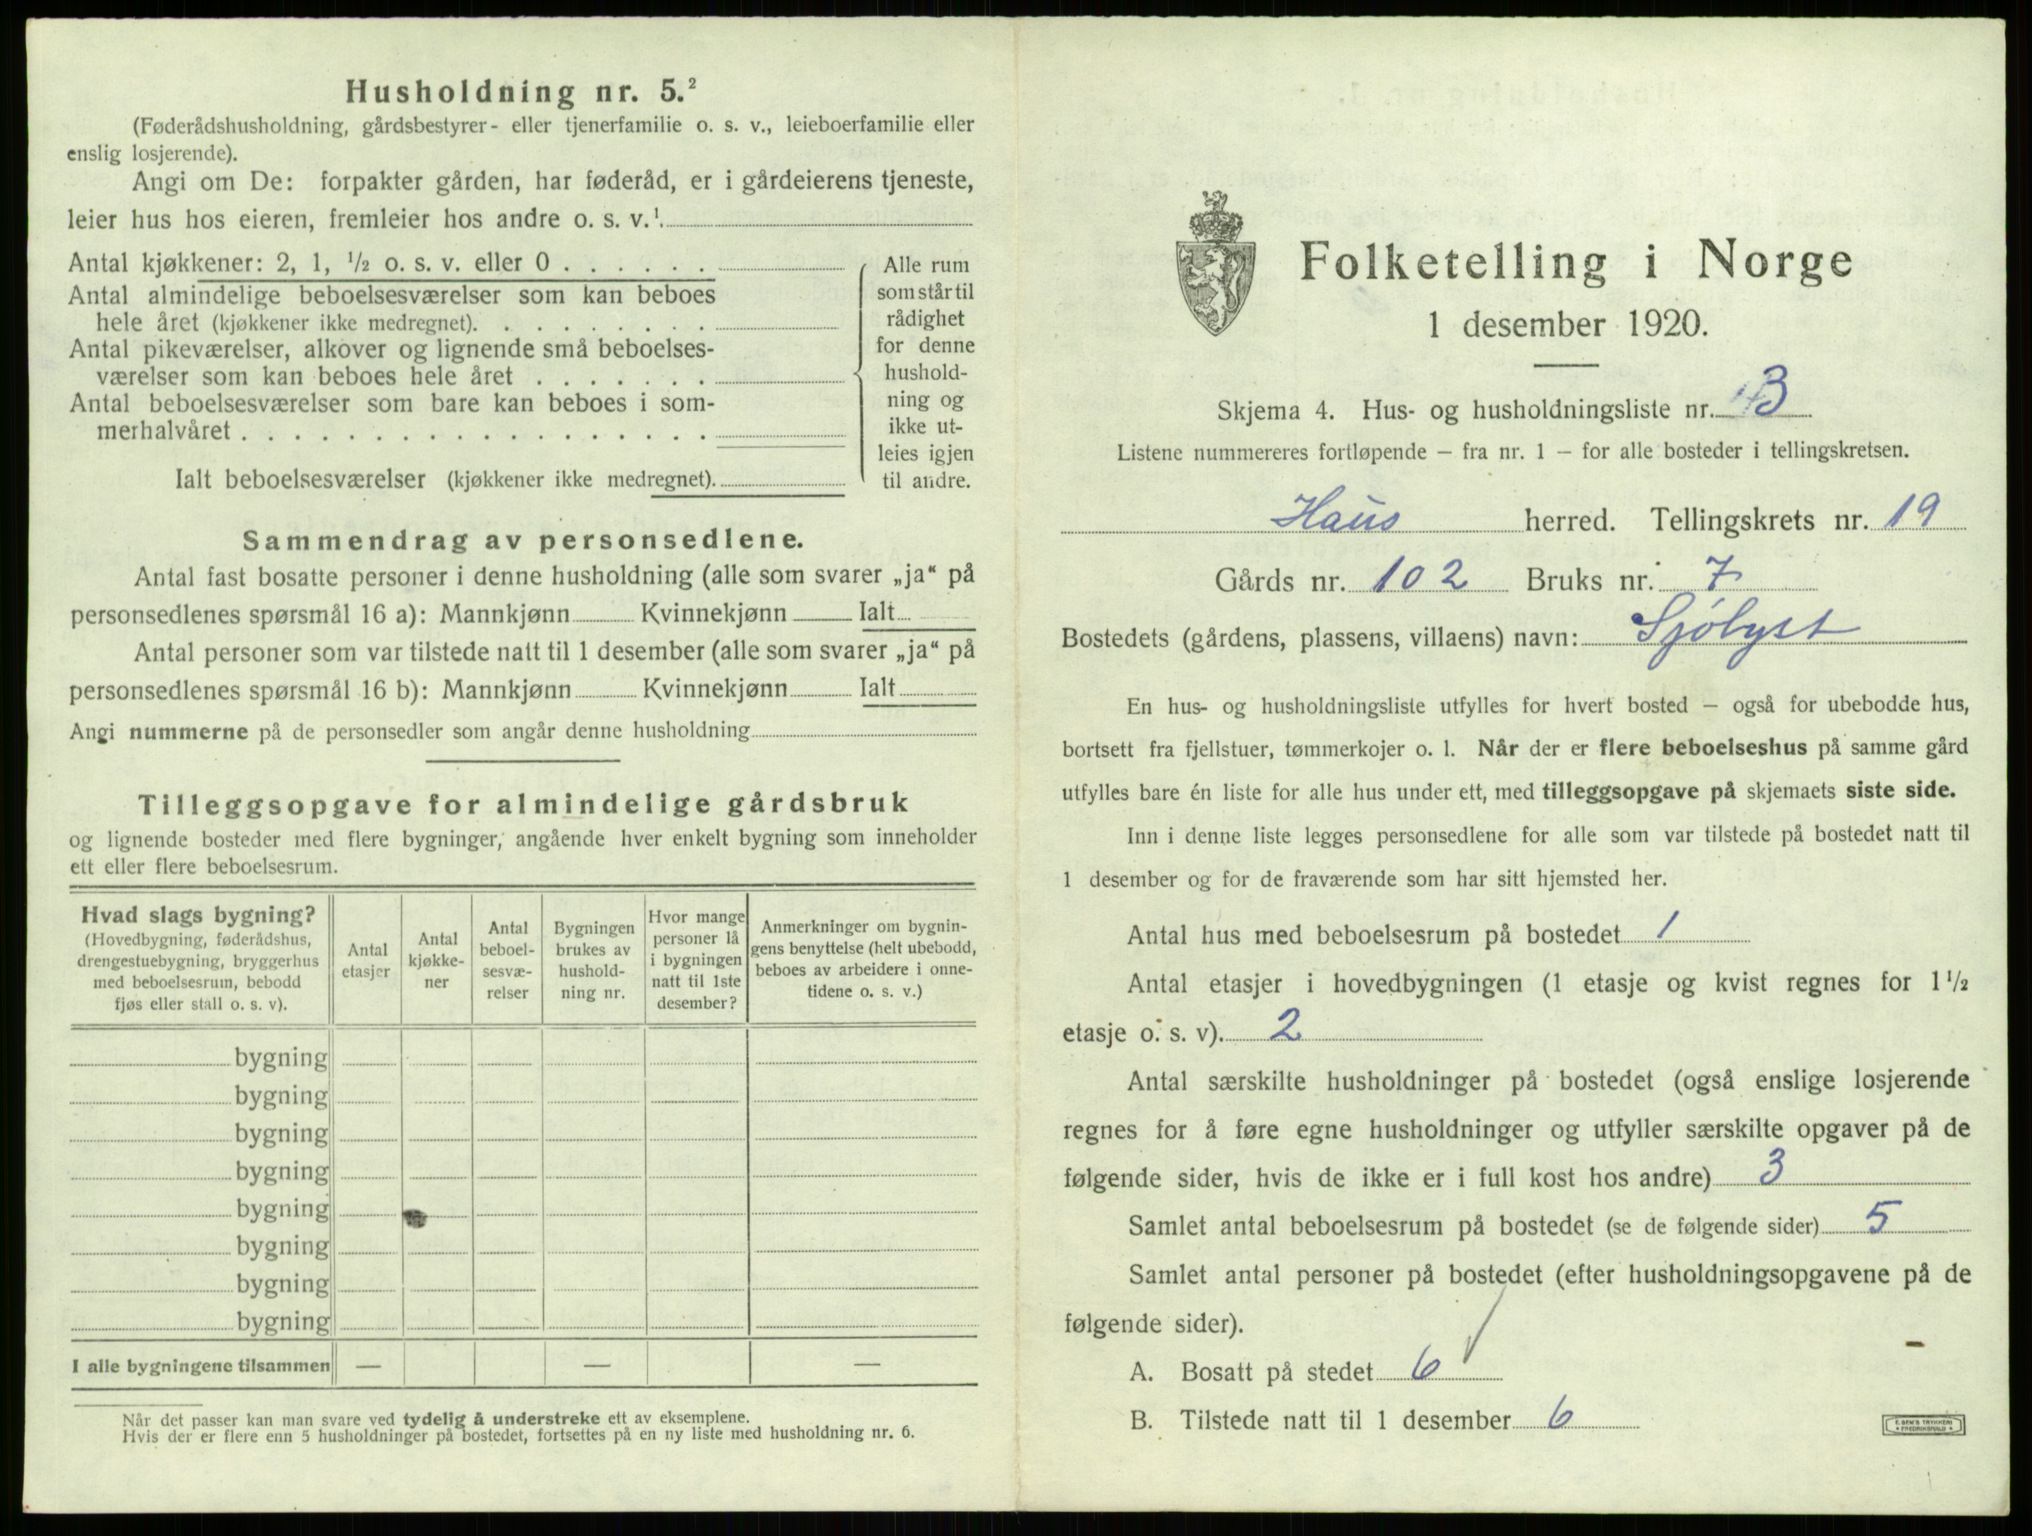 Husholdning nr. 5.²
(Føderådshusholdning, gårdsbestyrer- eller tjenerfamilie o. s. v., leieboerfamilie eller
enslig losjerende).
Angi om De: forpakter gården, har føderåd, er i gårdeierens tjeneste,
leier hus hos eieren, fremleier hos andre o. s. v.¹.
Antal kjøkkener: 2, 1, ½ o. s. v. eller 0 . . . . . .
Antal almindelige beboelsesværelser som kan beboes
hele året (kjøkkener ikke medregnet). . . . . . . . .
Antal pikeværelser, alkover og lignende små beboelses-
værelser som kan beboes hele året . . . . . . .
Antal beboelsesværelser som bare kan beboes i som-
merhalvåret . . . . . . . . . . . . . . . . . .
Ialt beboelsesværelser (kjøkkener ikke medregnet).
Alle rum
som står til
rådighet
for denne
hushold-
ning og
ikke ut-
leies igjen
til andre.
Sammendrag av personsedlene.
Antal fast bosatte personer i denne husholdning (alle som svarer „ja“ på
personsedlenes spørsmål 16 a): Mannkjønn Kvinnekjønn Ialt
Antal personer som var tilstede natt til 1 desember (alle som svarer „ja“ på
personsedlenes spørsmål 16 b): Mannkjønn Kvinnekjønn Ialt
Angi nummerne på de personsedler som angår denne husholdning
Tilleggsopgave for almindelige gårdsbruk
og lignende bosteder med flere bygninger, angående hver enkelt bygning som inneholder
ett eller flere beboelsesrum.
Hvad slags bygning?
(Hovedbygning, føderådshus,
drengestuebygning, bryggerhus
med beboelsesrum, bebodd
fjøs eller stall o. s. v).
Antal
etasjer
Antal
kjøkke-
ner
Antal
beboel-
sesvæ-
relser
Bygningen
brukes av
hushold-
ning nr.
Hvor mange
personer lå
i bygningen
natt til 1ste
desember?
Anmerkninger om bygnin-
gens benyttelse (helt ubebodd,
beboes av arbeidere i onne-
tidene o. s. v.)
bygning
bygning
bygning
bygning
bygning
bygning
bygning
bygning
I alle bygningene tilsammen — — —
Når det passer kan man svare ved tydelig å understreke ett av eksemplene.
Hvis der er flere enn 5 husholdninger på bostedet, fortsettes på en ny liste med husholdning nr. 6.
Folketelling i Norge
1 desember 1920.
Skjema 4. Hus- og husholdningsliste nr.
Listene nummereres fortløpende – fra nr. 1 – for alle bosteder i tellingskretsen.
Haus herred. Tellingskrets nr. 19
Gårds nr. 102 Bruks nr. 7
Bostedets (gårdens, plassens, villaens) navn: Sjölyst
En hus- og husholdningsliste utfylles for hvert bosted – også for ubebodde hus,
bortsett fra fjellstuer, tømmerkojer o. l. Når der er flere beboelseshus på samme gård
utfylles bare én liste for alle hus under ett, med tilleggsopgave på skjemaets siste side.
Inn i denne liste legges personsedlene for alle som var tilstede på bostedet natt til
1 desember og for de fraværende som har sitt hjemsted her.
Antal hus med beboelsesrum på bostedet 1
Antal etasjer i hovedbygningen (1 etasje og kvist regnes for 1½
etasje o. s. v). 2
Antal særskilte husholdninger på bostedet (også enslige losjerende
regnes for å føre egne husholdninger og utfyller særskilte opgaver på de
følgende sider, hvis de ikke er i full kost hos andre) 3
Samlet antal beboelsesrum på bostedet (se de følgende sider) 5
Samlet antal personer på bostedet (efter husholdningsopgavene på de
følgende sider).
A. Bosatt på stedet 6
B. Tilstede natt til 1 desember 6